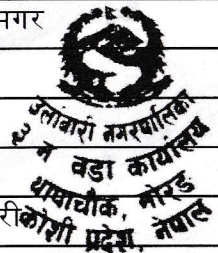 नगर
उर्लाबारी नगरपालिका
३ न वडा कार्यालय
थापाचौक, मोरङ
री
कोशी प्रदेश, नेपाल